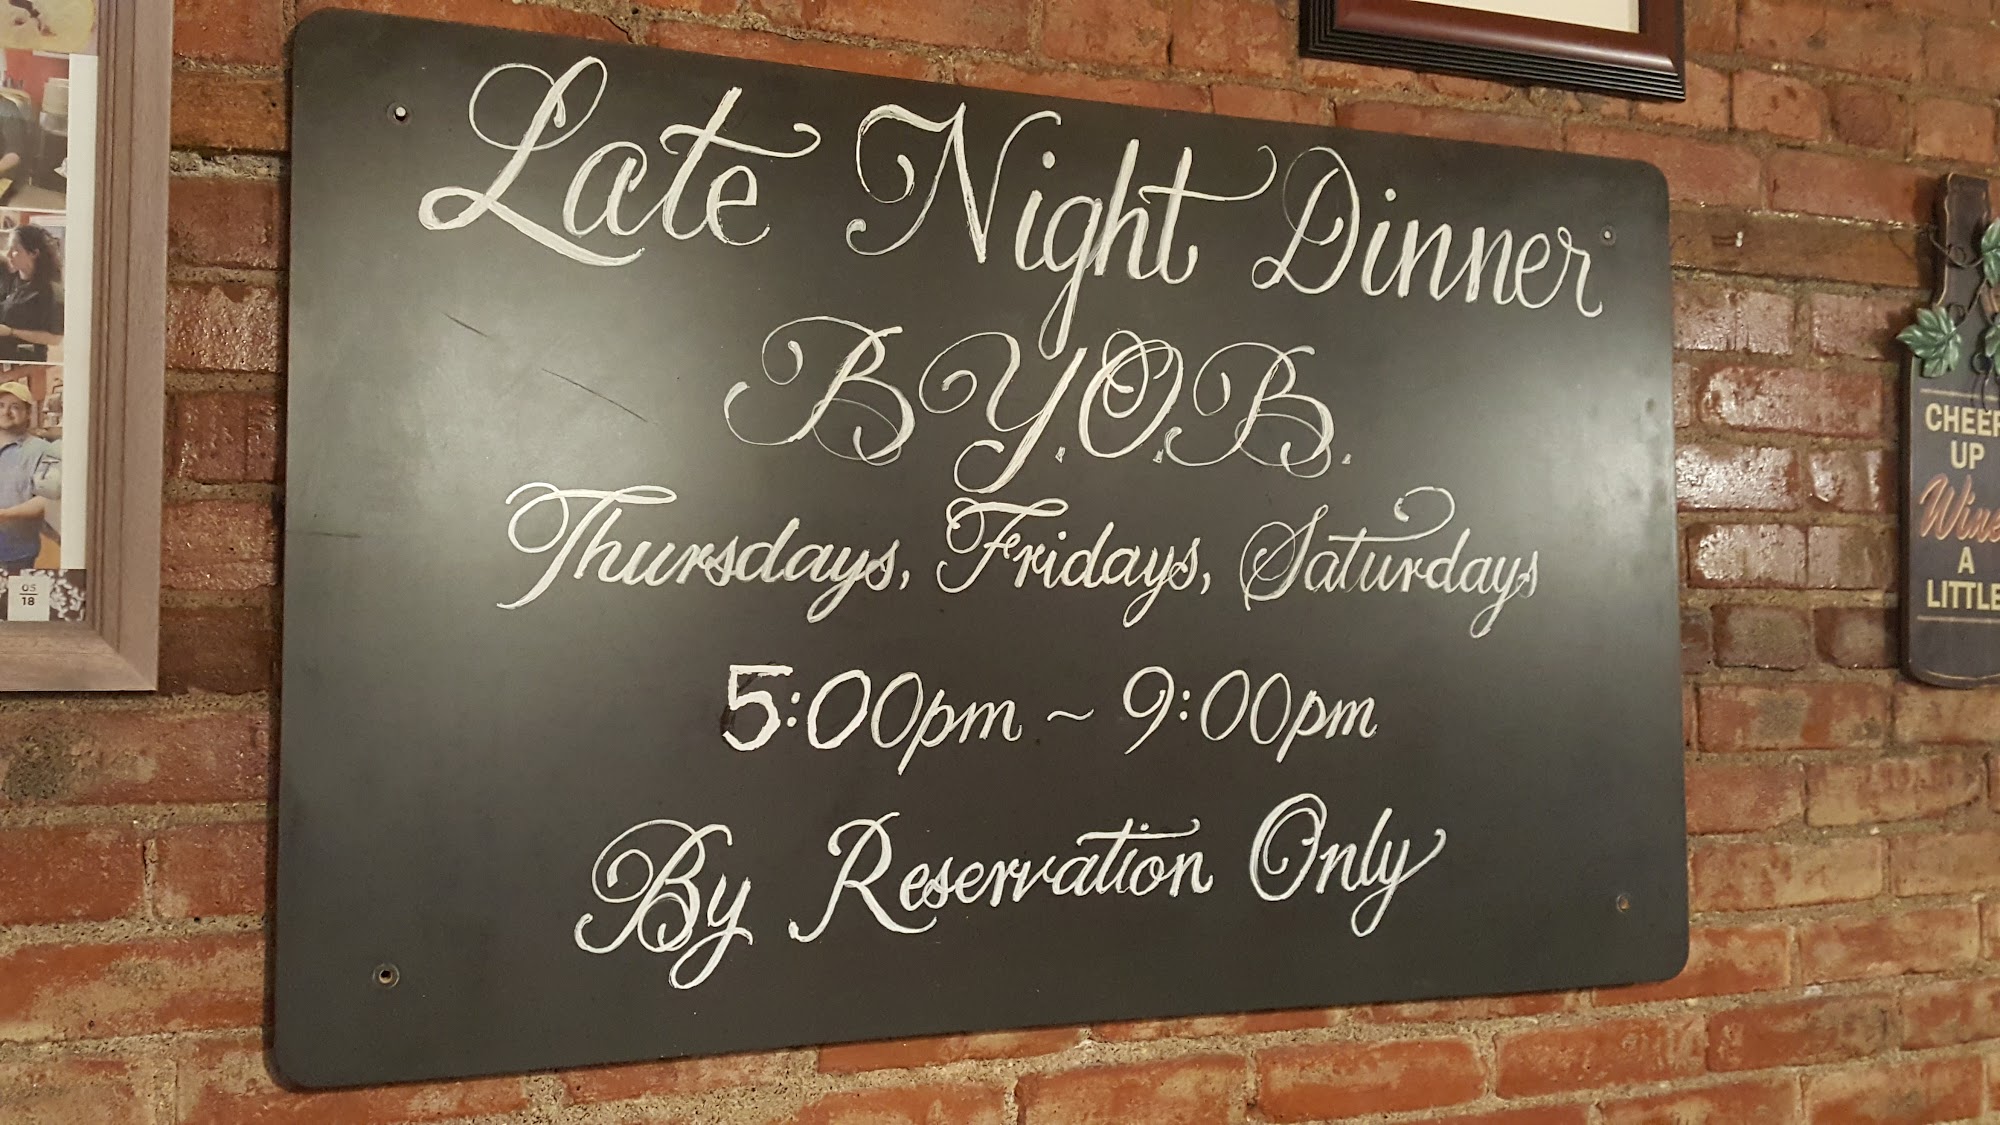 Late Night Dinner
B.Y.O.B.
Thursdays, Fridays, Saturdays
5:00pm ~ 9:00pm
By Reservation Only
CHEER
UP
Wine
A
LITTLE
05
18